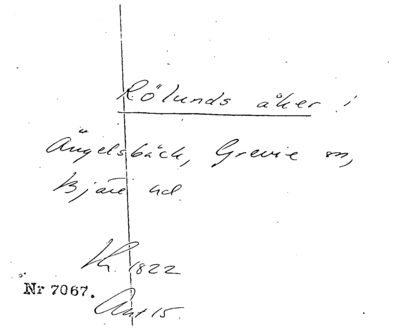 Rölunds åker i
Ängelsbäck, Grevie sn,
Bjäre hd.
1822
Nr 7067.
Akt 15.